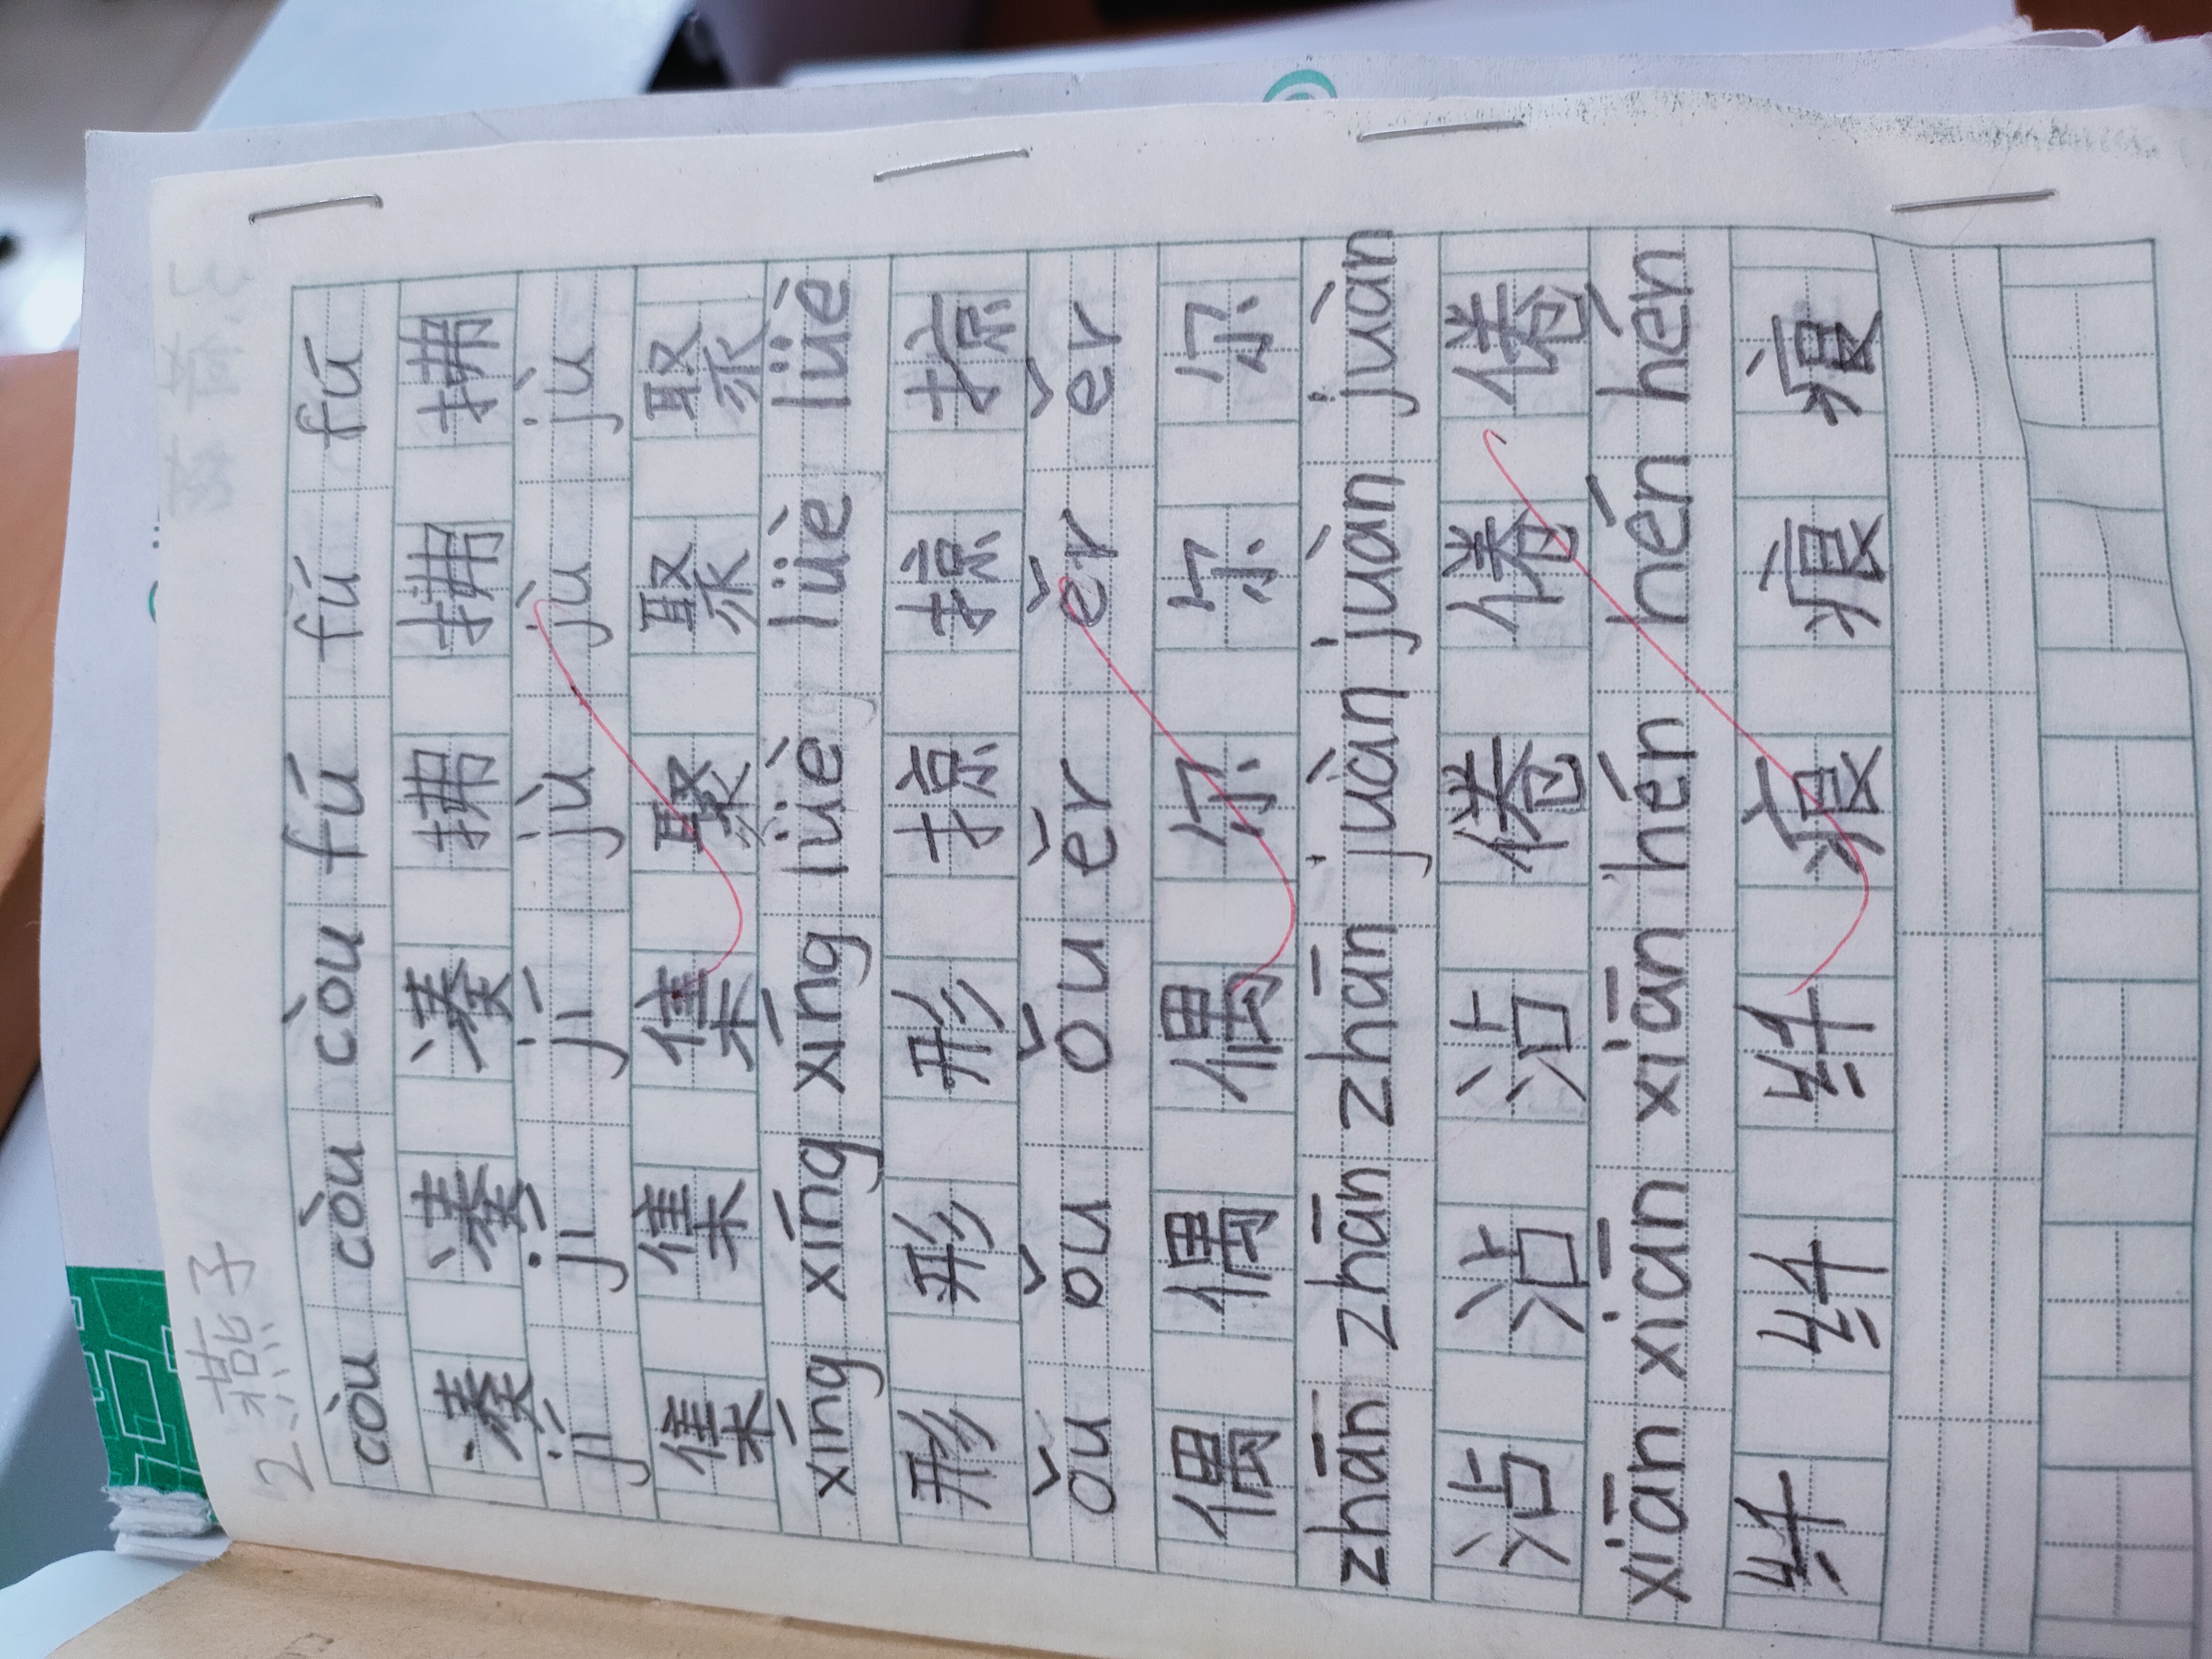 2.燕子
còu còu còu fú fú fú
凑 凑 凑 拂 拂 拂
jí jí jí jù jù jù
集 集 集 聚 聚 聚
xíng xíng xíng lüè lüè lüè
形 形 形 掠 掠 掠
ǒu ǒu ǒu ěr ěr ěr
偶 偶 偶 尔 尔 尔
zhān zhān zhān juàn juàn juàn
沾 沾 沾 倦 倦 倦
xiān xiān xiān hén hén hén
纤 纤 纤 痕 痕 痕